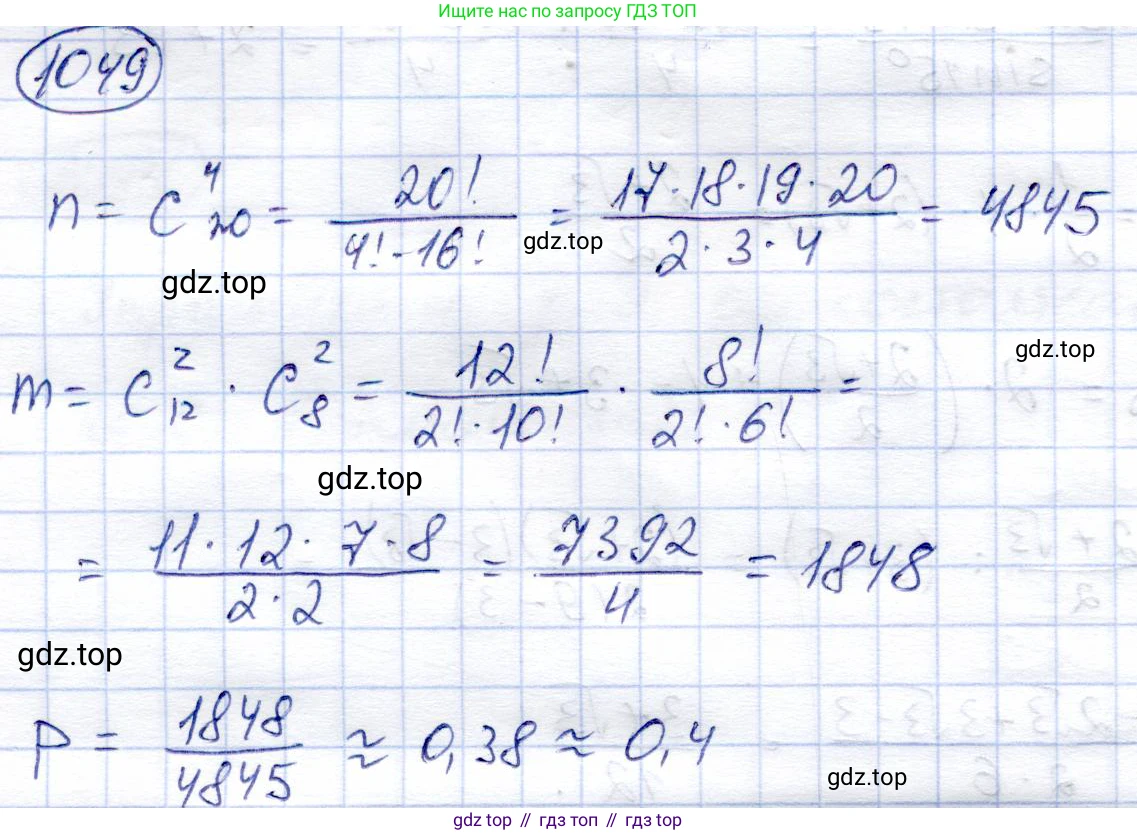 Ищите нас по запросу ГДЗ ТОП
1049
n = C⁴₂₀ = 20! / (4! · 16!) = (17 · 18 · 19 · 20) / (2 · 3 · 4) = 4845
gdz.top
gdz.top
m = C²₁₂ · C²₈ = 12! / (2! · 10!) · 8! / (2! · 6!) =
gdz.top
gdz.top
= (11 · 12 · 7 · 8) / (2 · 2) = 7392 / 4 = 1848
gdz.top
P = 1848 / 4845 ≈ 0,38 ≈ 0,4
gdz.top
gdz top // гдз топ // gdz top